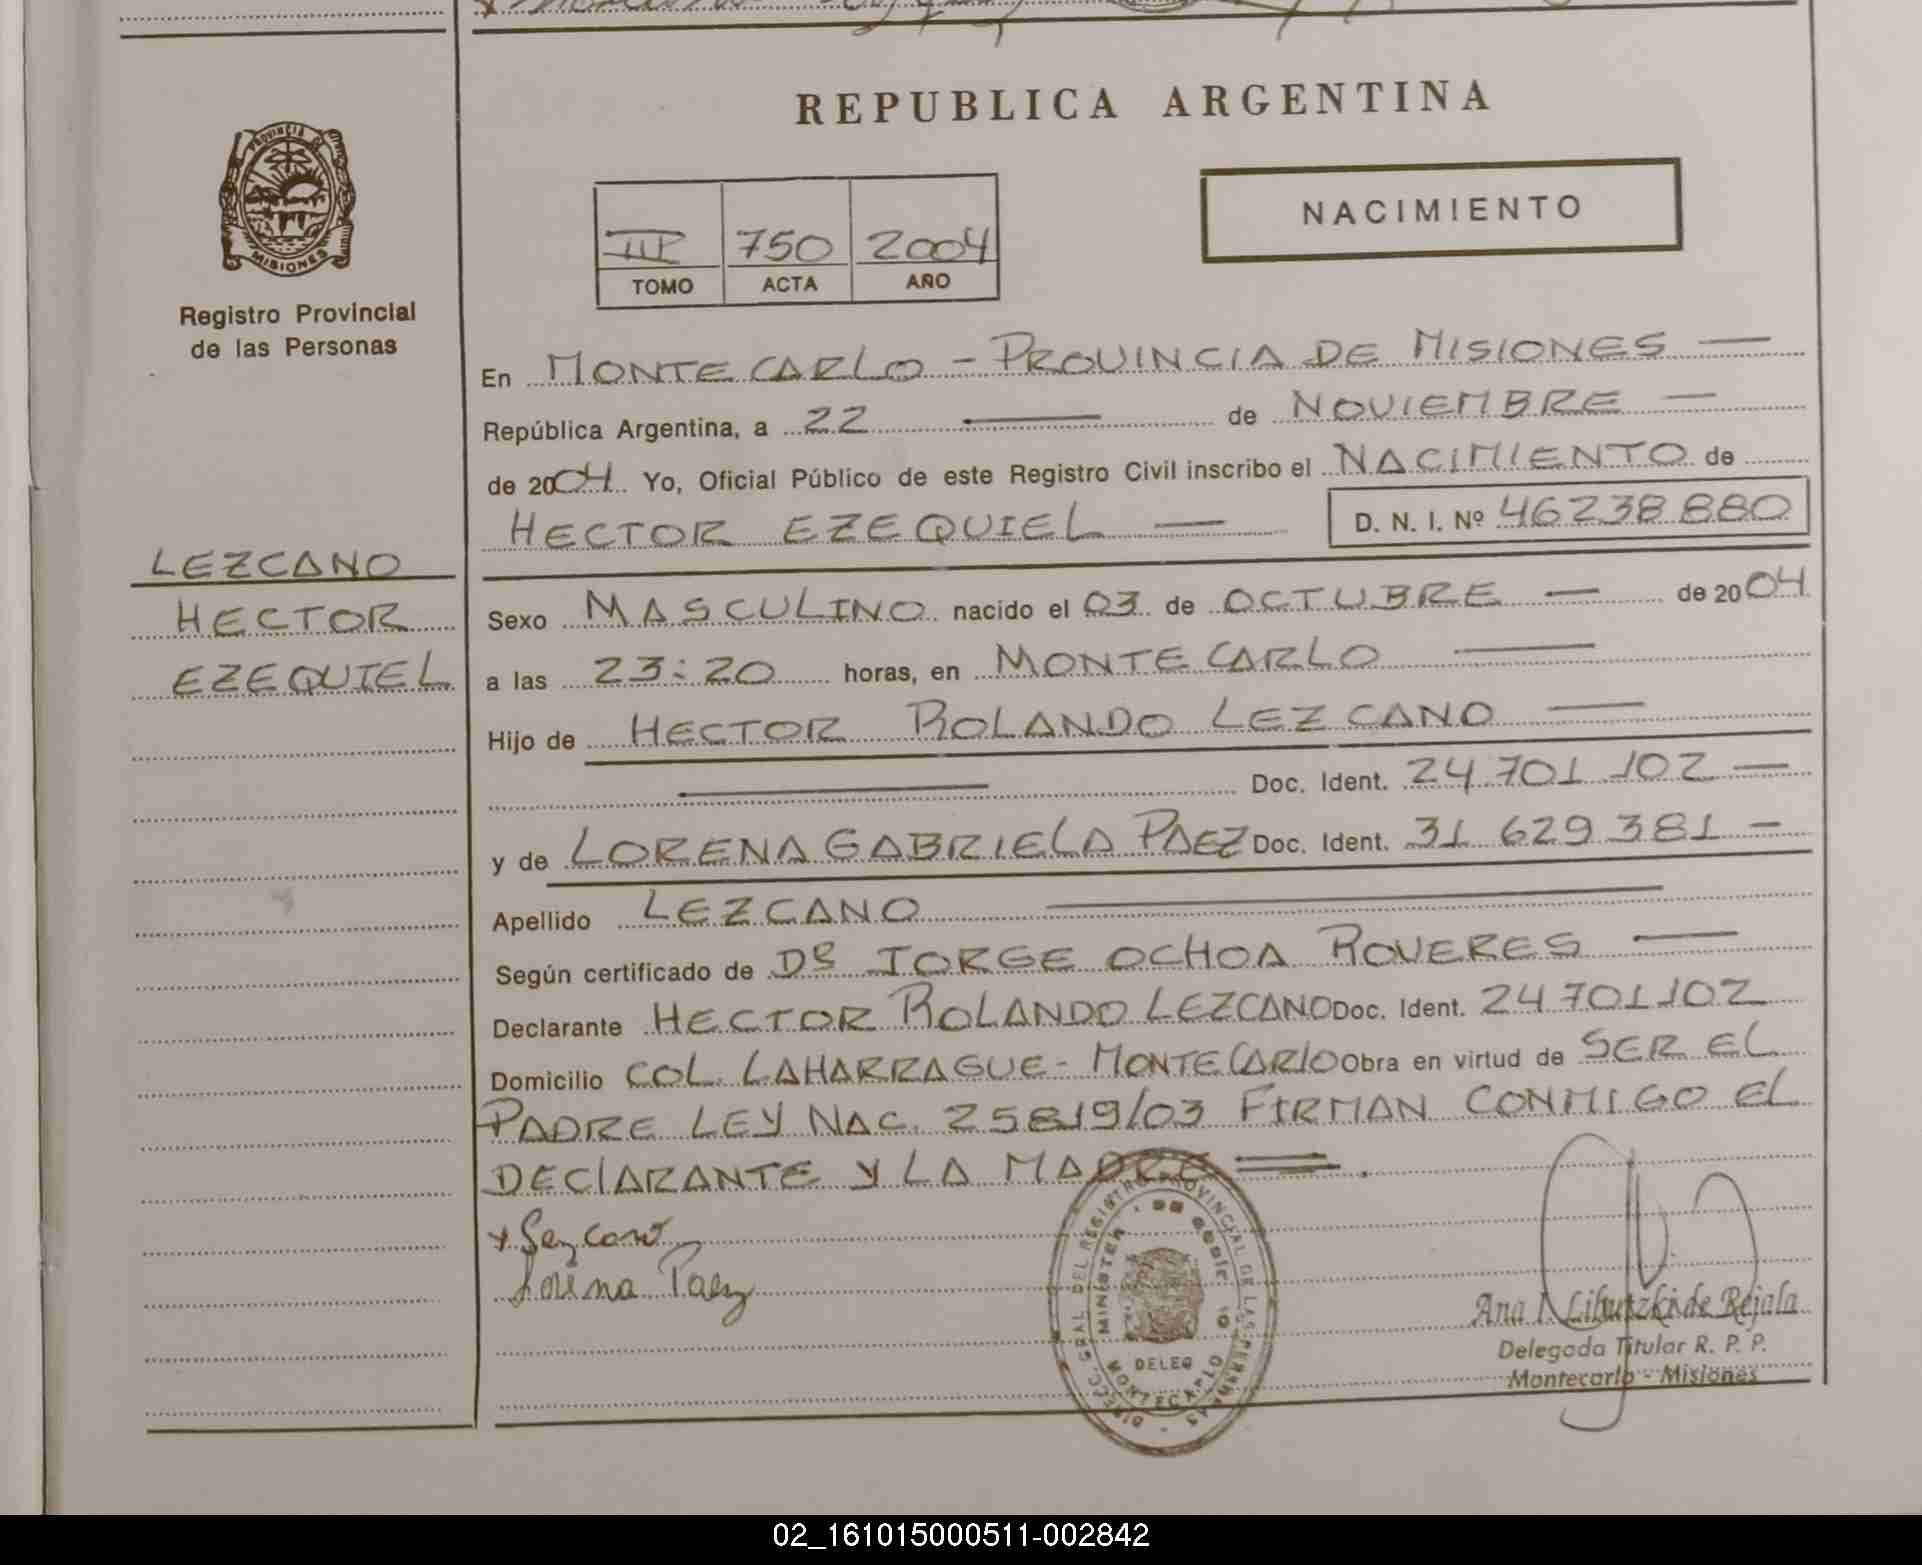 REPUBLICA ARGENTINA
PROVINCIA DE
MISIONES
Registro Provincial
de las Personas
NACIMIENTO
III 750 2004
TOMO ACTA AÑO
En MONTECARLO - PROVINCIA DE MISIONES —
República Argentina, a 22 — de NOVIEMBRE —
de 2004 Yo, Oficial Público de este Registro Civil inscribo el NACIMIENTO de
HECTOR EZEQUIEL — D. N. I. Nº 46238880
LEZCANO
HECTOR
EZEQUIEL
Sexo MASCULINO nacido el 03 de OCTUBRE — de 2004
a las 23:20 horas, en MONTECARLO —
Hijo de HECTOR ROLANDO LEZCANO —
— Doc. Ident. 24.701.102 —
y de LORENA GABRIELA PAEZ Doc. Ident. 31 629 381 —
Apellido LEZCANO —
Según certificado de Dº JORGE OCHOA ROVERES —
Declarante HECTOR ROLANDO LEZCANO Doc. Ident. 24.701.102
Domicilio COL. LAHARRAGUE - MONTECARLO Obra en virtud de SER EL
PADRE LEY NAC. 25819/03 FIRMAN CONMIGO EL
DECLARANTE Y LA MADRE =.
x Lezcano
Lorena Paez
DIRECC. GRAL DEL REGISTRO PROVINCIAL DE LAS PERSONAS
DELEG
MONTECARLO
Ana I. de Rejala
Delegada Titular R. P. P.
Montecarlo - Misiones
02_161015000511-002842